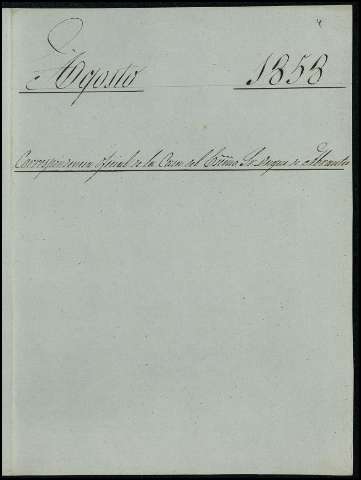 Agosto 1858
Correspondencia oficial de la Casa del Excmo. Sr. Duque de Abrantes